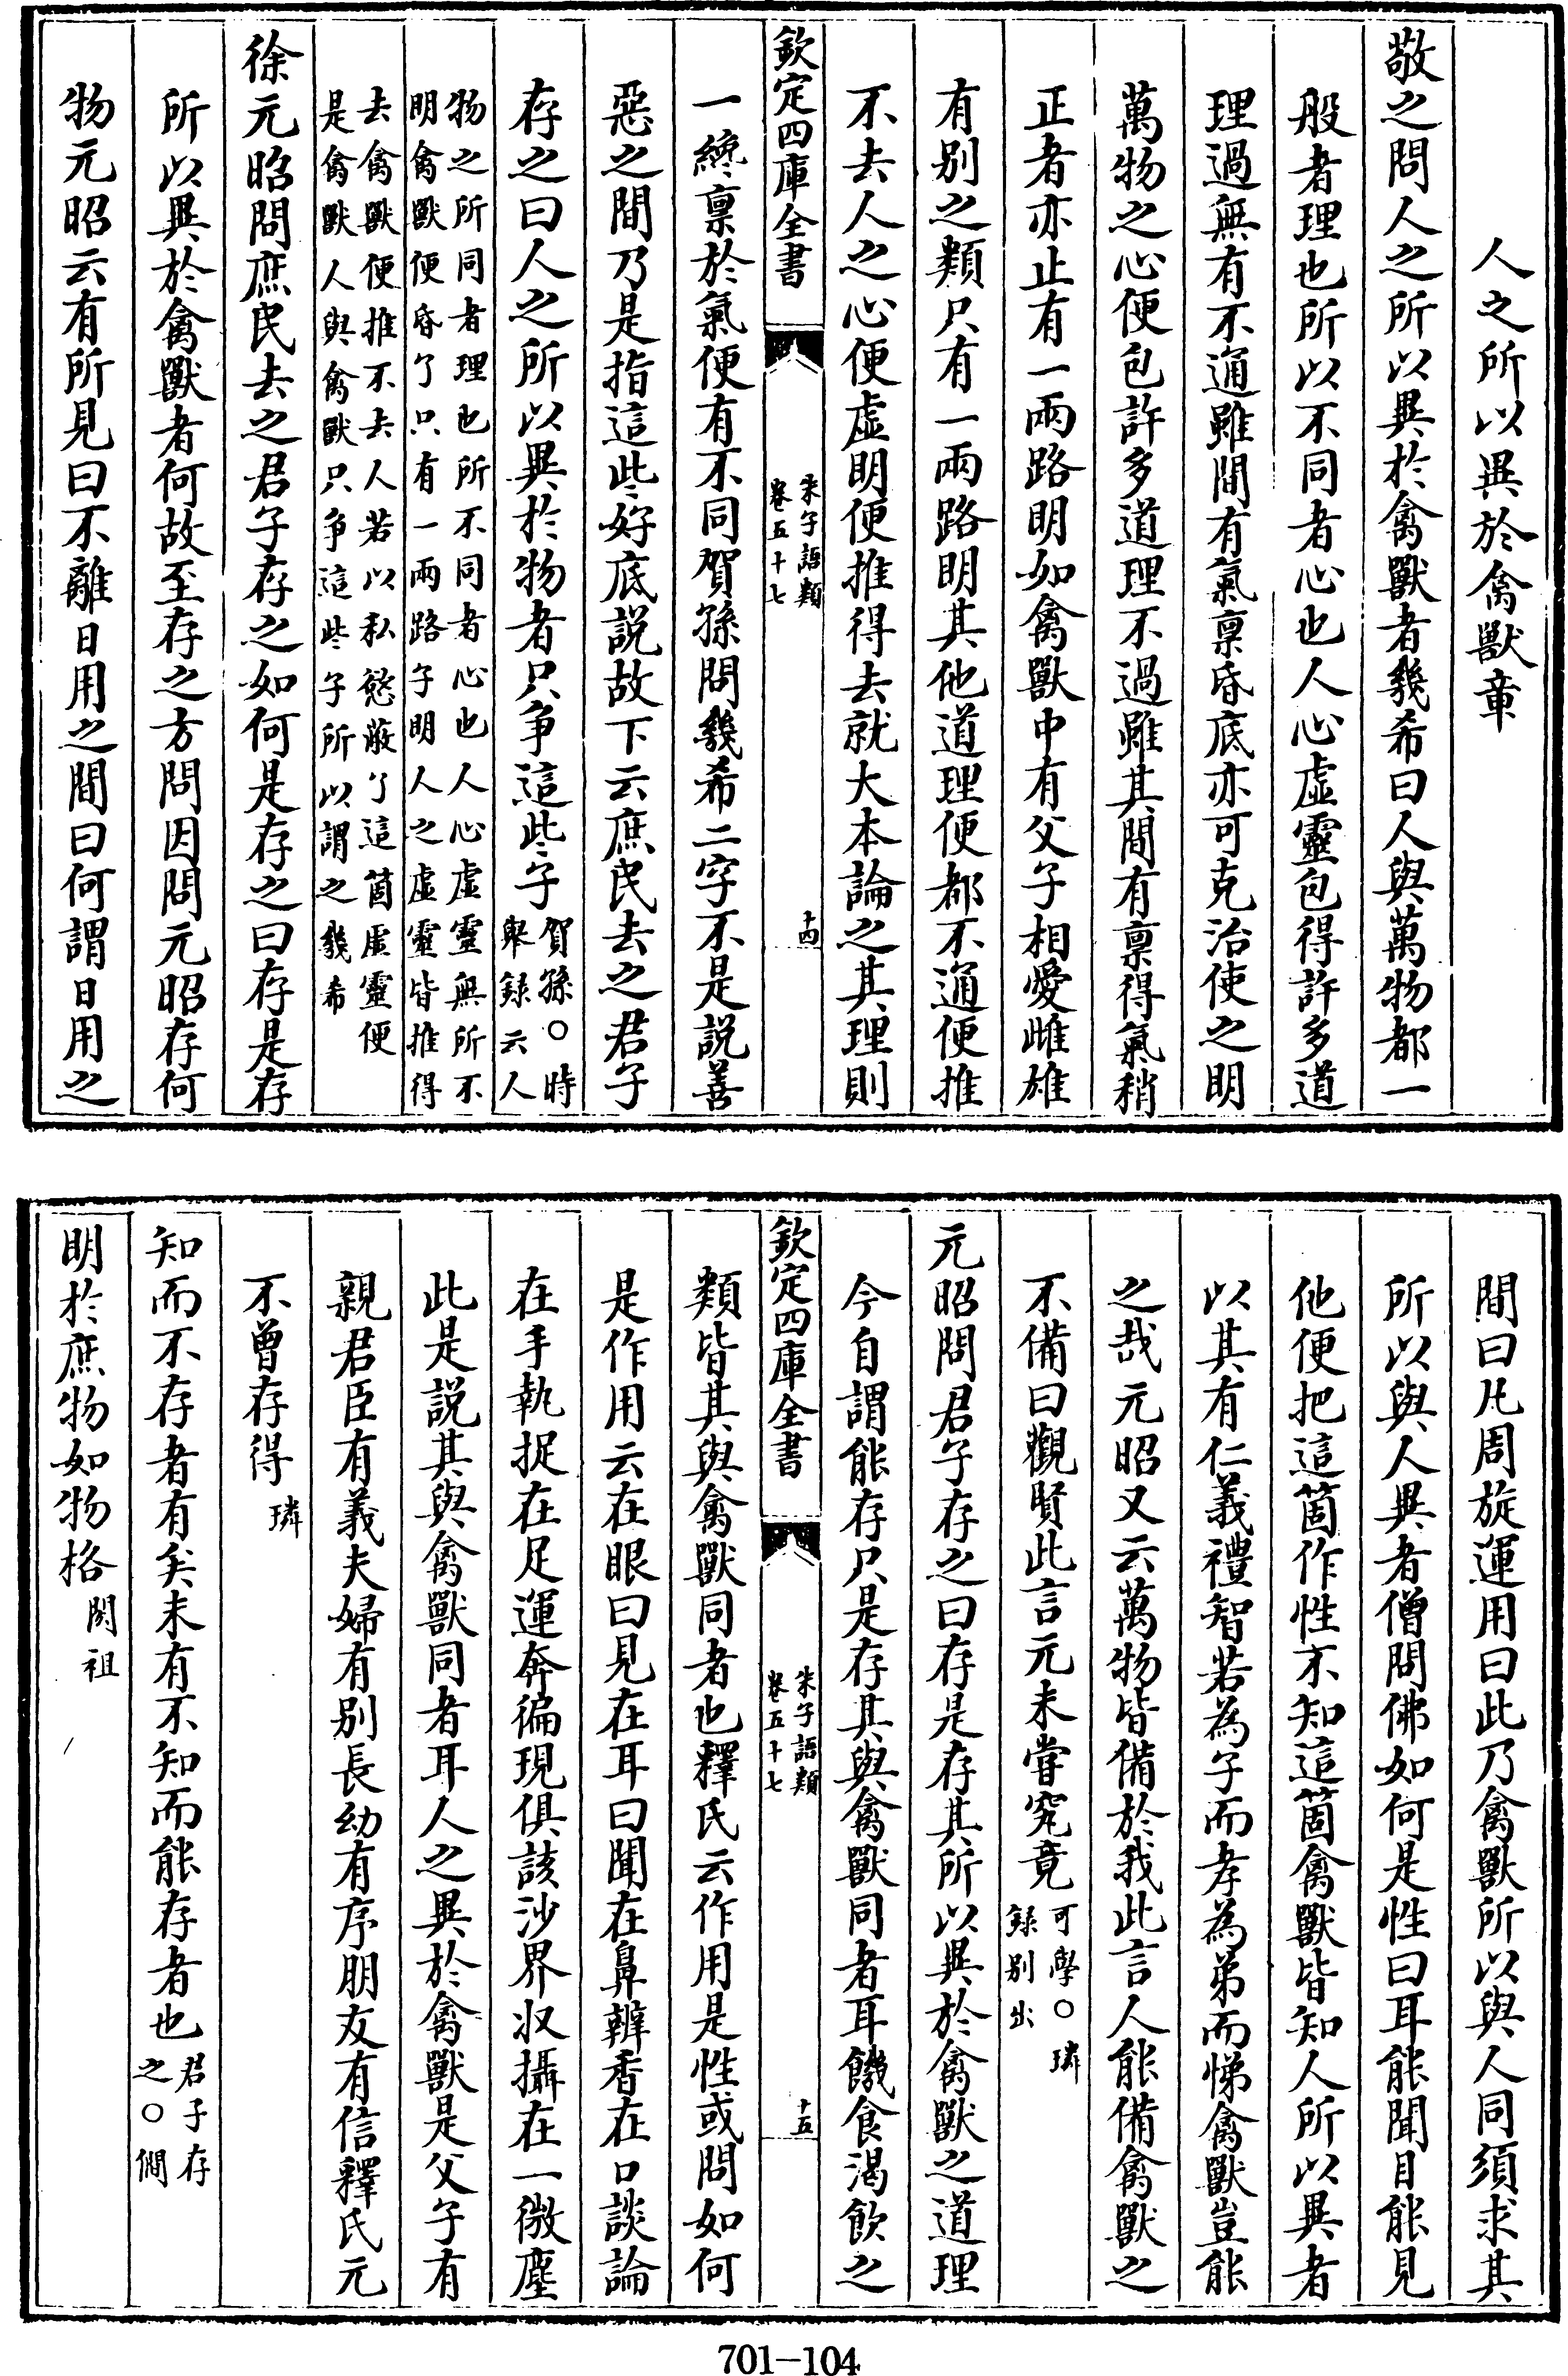 人之所以異於禽獸章
敬之問人之所以異於禽獸者幾希曰人與萬物都一
般者理也所以不同者心也人心虛靈包得許多道
理過無有不通雖間有氣稟昏底亦可克治使之明
萬物之心便包許多道理不過雖其間有稟得氣稍
正者亦止有一兩路明如禽獸中有父子相愛雌雄
有別之類只有一兩路明其他道理便都不通便推
不去人之心便虛明便推得去就大本論之其理則
欽定四庫全書
朱子語類
卷五十七
十四
一纔稟於氣便有不同賀孫問幾希二字不是說善
惡之間乃是指這些好底說故下云庶民去之君子
存之曰人之所以異於物者只爭這些子
賀孫○時
舉錄云人
物之所同者理也所不同者心也人心虛靈無所不
明禽獸便昏了只有一兩路子明人之虛靈皆推得
去禽獸便推不去人若以私慾蔽了這箇虛靈便
是禽獸人與禽獸只爭這些子所以謂之幾希
徐元昭問庶民去之君子存之如何是存之曰存是存
所以異於禽獸者何故至存之方問因問元昭存何
物元昭云有所見曰不離日用之間曰何謂日用之
間曰凡周旋運用曰此乃禽獸所以與人同須求其
所以與人異者僧問佛如何是性曰耳能聞目能見
他便把這箇作性不知這箇禽獸皆知人所以異者
以其有仁義禮智若為子而孝為弟而悌禽獸豈能
之哉元昭又云萬物皆備於我此言人能備禽獸之
不備曰觀賢此言元未嘗究竟
可學○璘
錄別出
元昭問君子存之曰存是存其所以異於禽獸之道理
今自謂能存只是存其與禽獸同者耳饑食渴飲之
欽定四庫全書
朱子語類
卷五十七
十五
類皆其與禽獸同者也釋氏云作用是性或問如何
是作用云在眼曰見在耳曰聞在鼻辨香在口談論
在手執捉在足運奔徧現俱該沙界收攝在一微塵
此是說其與禽獸同者耳人之異於禽獸是父子有
親君臣有義夫婦有別長幼有序朋友有信釋氏元
不曾存得
璘
知而不存者有矣未有不知而能存者也
君子存
之○僩
明於庶物如物格
閎祖
701-104